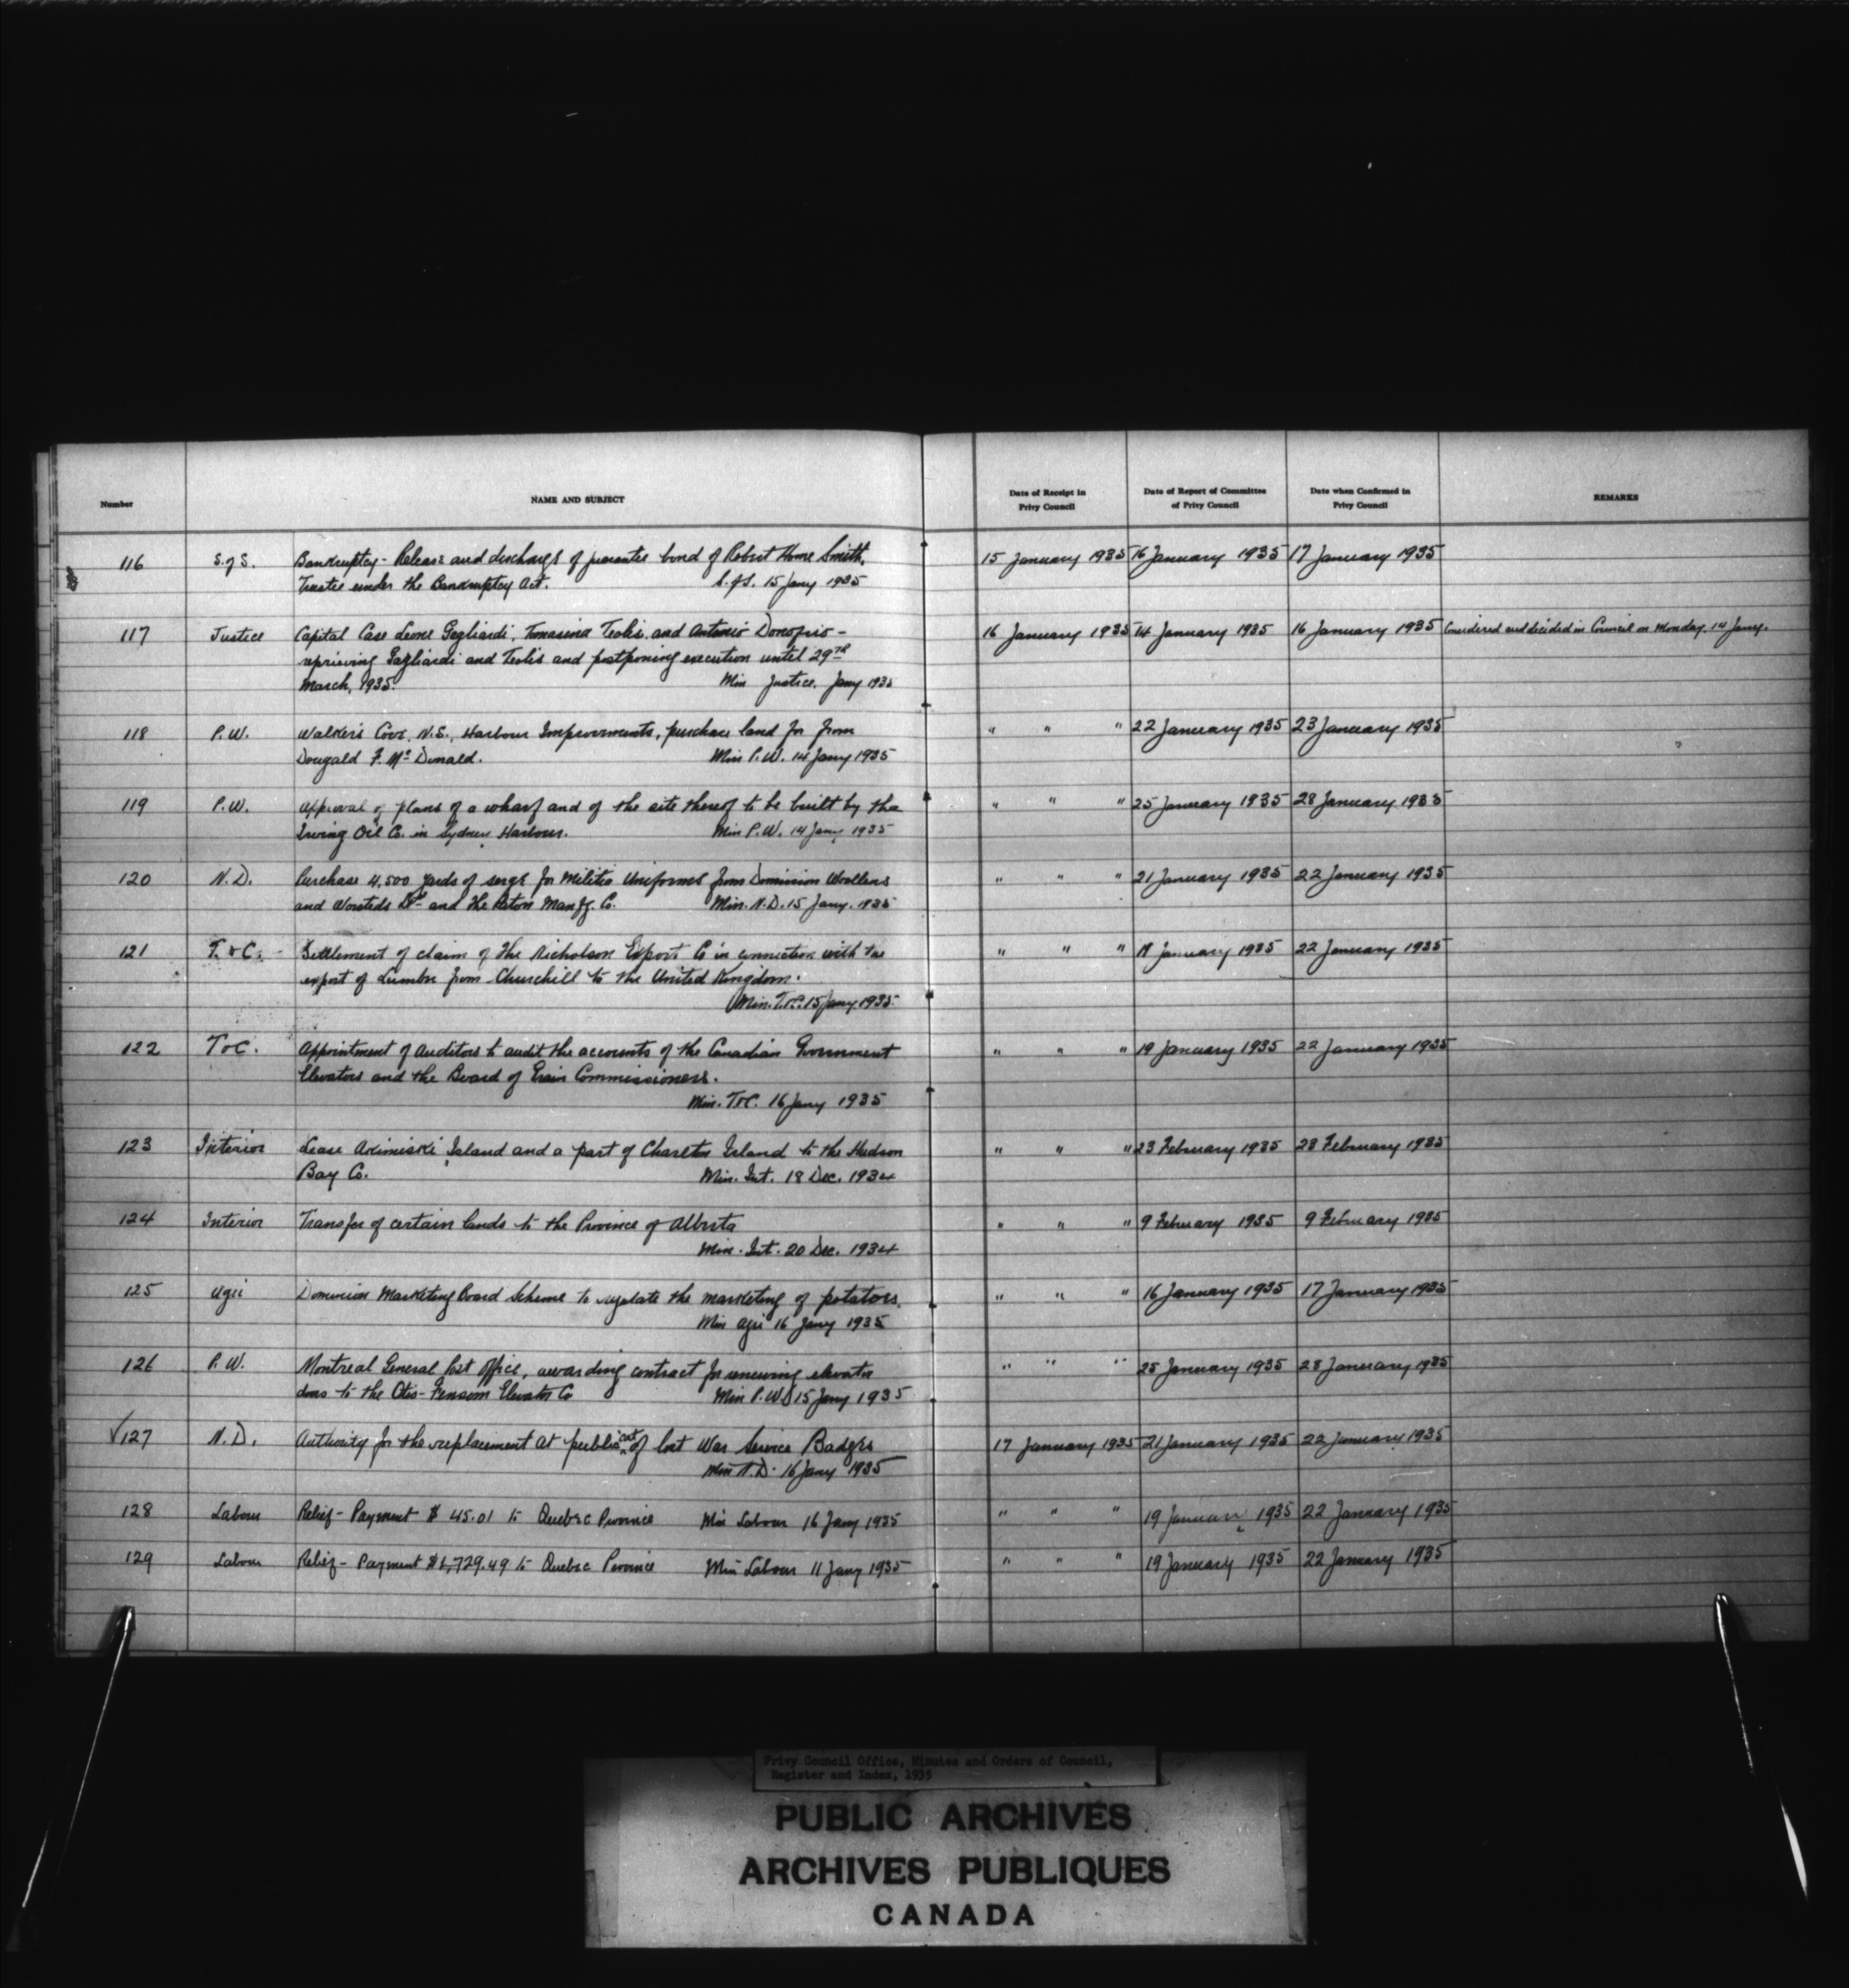 Number NAME AND SUBJECT Date of Receipt in Privy Council Date of Report of Committee of Privy Council Date when Confirmed in Privy Council REMARKS
116 S. of S. Bankruptcy - Release and discharge of guarantee bond of Robert Home Smith, 15 January 1935 16 January 1935 17 January 1935
Trustee under the Bankruptcy Act. S. of S. 15 Jany 1935
117 Justice Capital Case Leone Gagliardi, Tomasina Teolis, and Antonio Donofrio - 16 January 1935 14 January 1935 16 January 1935 Considered and decided in Council on Monday, 14 Jany.
reprieving Gagliardi and Teolis and postponing execution until 29th
March, 1935. Min Justice, Jany 1935
118 P.W. Walker's Cove, N.S., Harbour Improvements, purchase land for from " " " 22 January 1935 23 January 1935
Dougald F. McDonald. Min P.W. 14 Jany 1935
119 P.W. Approval of plans of a wharf and of the site thereof to be built by the " " " 25 January 1935 28 January 1935
Irving Oil Co. in Sydney Harbour. Min P.W. 14 Jany 1935
120 N.D. Purchase 4,500 yards of serge for Militia Uniforms from Dominion Woollens " " " 21 January 1935 22 January 1935
and Worsteds Ltd and the Paton Manfg. Co. Min. N.D. 15 Jany. 1935
121 T. & C. Settlement of claim of the Nicholson Export Co in connection with the " " " January 1935 22 January 1935
export of Lumber from Churchill to the United Kingdom.
Min. T.&C. 15 Jany 1935
122 T & C. Appointment of Auditors to audit the accounts of the Canadian Government " " " 19 January 1935 22 January 1935
Elevators and the Board of Grain Commissioners.
Min. T&C. 16 Jany 1935
123 Interior Lease Akimiski Island and a part of Charlton Island to the Hudson " " " 23 February 1935 23 February 1935
Bay Co. Min. Int. 18 Dec. 1934
124 Interior Transfer of certain lands to the Province of Alberta " " " 9 February 1935 9 February 1935
Min. Int. 20 Dec. 1934
125 Agri Dominion Marketing Board Scheme to regulate the marketing of potatoes. " " " 16 January 1935 17 January 1935
Min Agri 16 Jany 1935
126 P.W. Montreal General Post Office, awarding contract for renewing elevator " " " 25 January 1935 28 January 1935
doors to the Otis-Fensom Elevator Co Min P.W. 15 Jany 1935
✓127 N.D. Authority for the replacement at public cost of lost War Service Badges 17 January 1935 21 January 1935 22 January 1935
Min N.D. 16 Jany 1935
128 Labour Relief - Payment $ 45.01 to Quebec Province Min Labour 16 Jany 1935 " " " 19 January 1935 22 January 1935
129 Labour Relief - Payment to Quebec Province Min Labour 11 Jany 1935 " " " 19 January 1935 22 January 1935
Privy Council Office, Minutes and Orders of Council,
Register and Index, 1935
PUBLIC ARCHIVES
ARCHIVES PUBLIQUES
CANADA